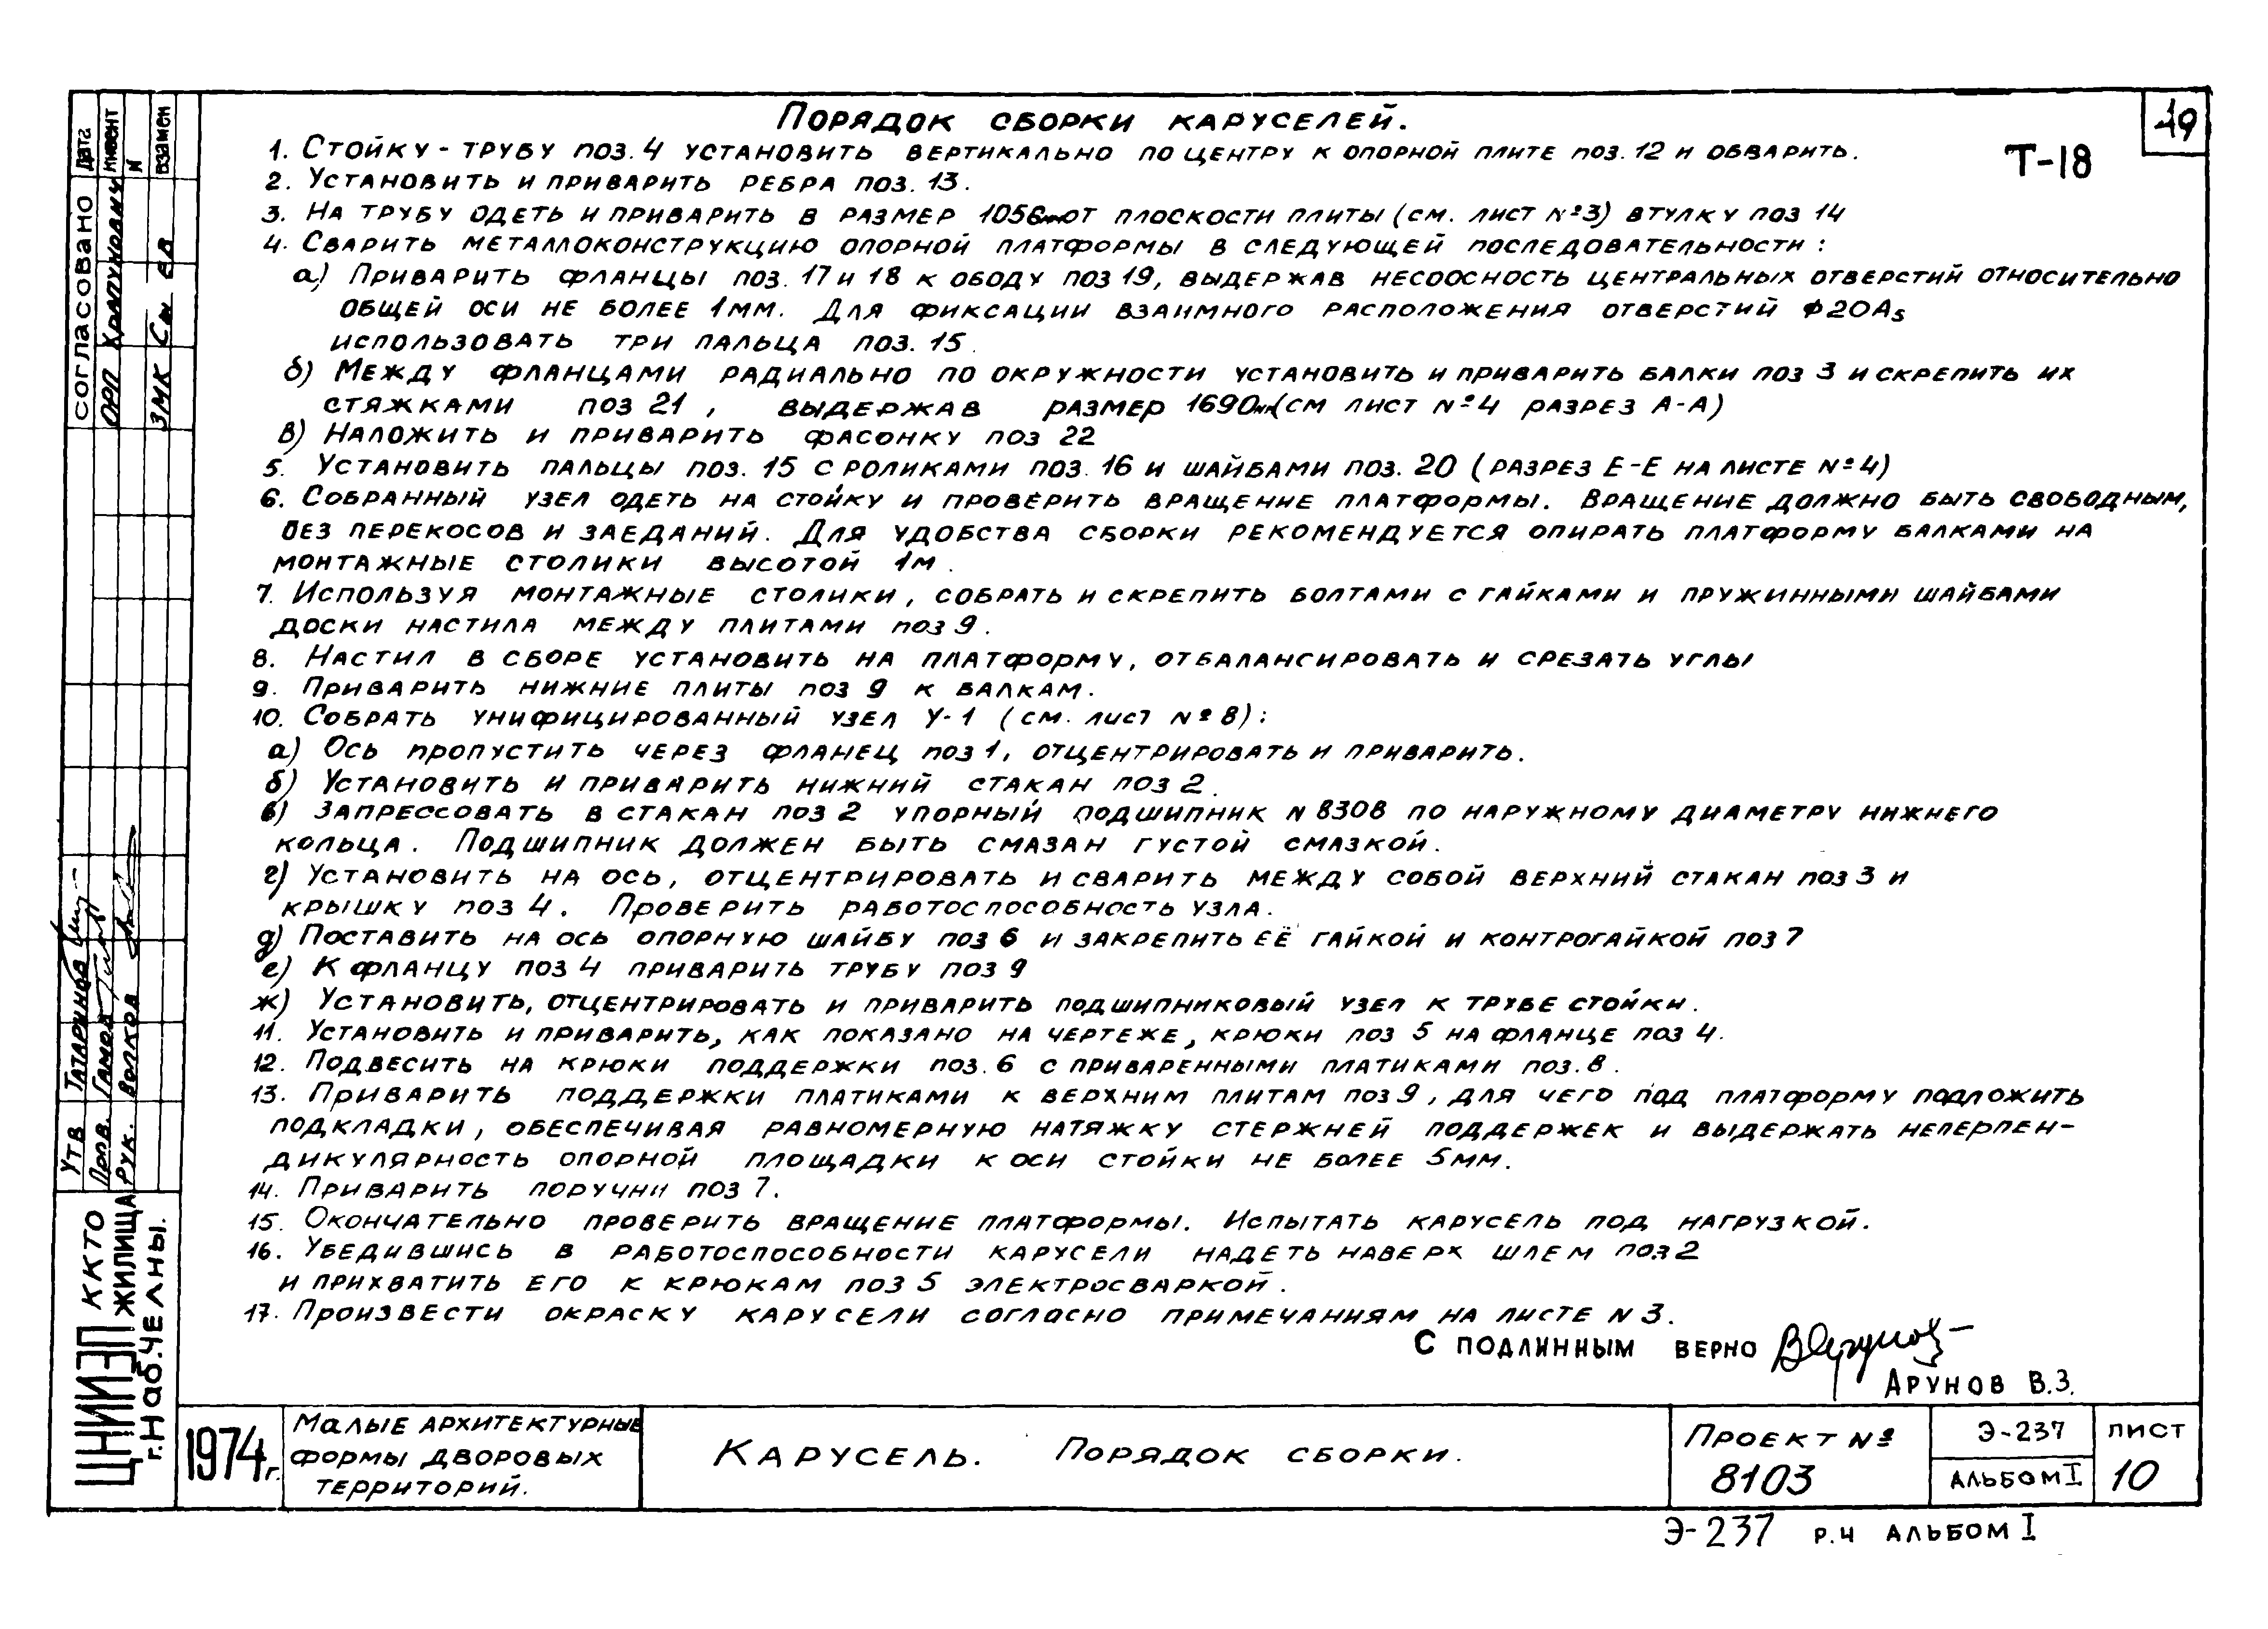 19
Т-18
Порядок сборки каруселей.
1. Стойку-трубу поз. 4 установить вертикально по центру к опорной плите поз. 12 и обварить.
2. Установить и приварить ребра поз. 13.
3. На трубу одеть и приварить в размер 1056мм от плоскости плиты (см. лист №3) втулку поз 14
4. Сварить металлоконструкцию опорной платформы в следующей последовательности:
а) Приварить фланцы поз. 17 и 18 к ободу поз 19, выдержав несоосность центральных отверстий относительно
общей оси не более 1мм. Для фиксации взаимного расположения отверстий ф20А5
использовать три пальца поз. 15.
б) Между фланцами радиально по окружности установить и приварить балки поз 3 и скрепить их
стяжками поз 21, выдержав размер 1690мм (см лист №4 разрез А-А)
в) Наложить и приварить фасонку поз 22
5. Установить пальцы поз. 15 с роликами поз. 16 и шайбами поз. 20 (разрез Е-Е на листе №4)
6. Собранный узел одеть на стойку и проверить вращение платформы. Вращение должно быть свободным,
без перекосов и заеданий. Для удобства сборки рекомендуется опирать платформу балками на
монтажные столики высотой 1м.
7. Используя монтажные столики, собрать и скрепить болтами с гайками и пружинными шайбами
доски настила между плитами поз 9.
8. Настил в сборе установить на платформу, отбалансировать и срезать углы
9. Приварить нижние плиты поз 9 к балкам.
10. Собрать унифицированный узел У-1 (см. лист №8):
а) Ось пропустить через фланец поз 1, отцентрировать и приварить.
б) Установить и приварить нижний стакан поз 2.
в) Запрессовать в стакан поз 2 упорный подшипник N 8308 по наружному диаметру нижнего
кольца. Подшипник должен быть смазан густой смазкой.
г) Установить на ось, отцентрировать и сварить между собой верхний стакан поз 3 и
крышку поз 4. Проверить работоспособность узла.
д) Поставить на ось опорную шайбу поз 6 и закрепить её гайкой и контрогайкой поз 7
е) К фланцу поз 4 приварить трубу поз 9
ж) Установить, отцентрировать и приварить подшипниковый узел к трубе стойки.
11. Установить и приварить, как показано на чертеже, крюки поз 5 на фланце поз 4.
12. Подвесить на крюки поддержки поз. 6 с приваренными платиками поз. 8.
13. Приварить поддержки платиками к верхним плитам поз 9, для чего под платформу подложить
подкладки, обеспечивая равномерную натяжку стержней поддержек и выдержать неперпен-
дикулярность опорной площадки к оси стойки не более 5мм.
14. Приварить поручни поз 7.
15. Окончательно проверить вращение платформы. Испытать карусель под нагрузкой.
16. Убедившись в работоспособности карусели надеть наверх шлем поз 2
и прихватить его к крюкам поз 5 электросваркой.
17. Произвести окраску карусели согласно примечаниям на листе N 3.
С подлинным верно
Арунов В.З.
согласовано
дата
инвент
N
взамен
ОРП Храпунович
ЗМК
Утв Татаринов
Пров. Гамов
Рук. Волков
ЦНИИЭП ККТО
жилища
г. Наб. Челны.
1974г.
Малые архитектурные
формы дворовых
территорий.
Карусель. Порядок сборки.
Проект №
8103
Э-237
альбом I
лист
10
Э-237 р.ч альбом I